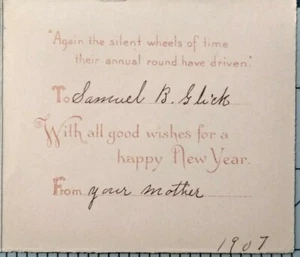 "Again the silent wheels of time
their annual round have driven."
To Samuel B. Glick
With all good wishes for a
happy New Year.
From your mother
1907